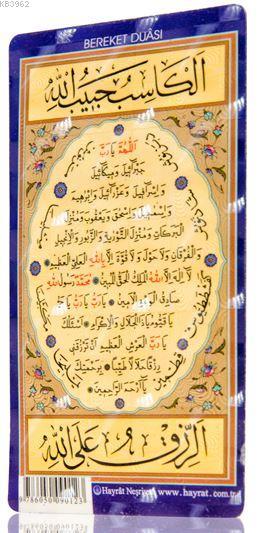 KB3962
BEREKET DUÂSI
اَلْكَاسِبُ حَبِيبُ اللّٰهِ
اَللّٰهُمَّ يَا رَبَّ
جَبْرَائِيلَ وَمِيكَائِيلَ
وَاِسْرَافِيلَ وَعَزْرَائِيلَ وَاِبْرٰهِيمَ
وَاِسْمٰعِيلَ وَاِسْحٰقَ وَيَعْقُوبَ وَمُنْزِلَ
الْبَرَكَاتِ وَمُنْزِلَ التَّوْرٰيةِ وَالزَّبُورِ وَالْاِنْجِيلِ
وَالْفُرْقَانِ وَلَا حَوْلَ وَلَا قُوَّةَ اِلَّا بِاللّٰهِ الْعَلِيِّ الْعَظِيمِ
لَا اِلٰهَ اِلَّا اللّٰهُ الْمَلِكُ الْحَقُّ الْمُبِينُ مُحَمَّدٌ رَسُولُ اللّٰهِ
صَادِقُ الْوَعْدِ الْاَمِينُ يَا رَبِّ يَا رَبِّ يَا حَيُّ
يَا قَيُّومُ يَا ذَا الْجَلَالِ وَالْاِكْرَامِ اَسْئَلُكَ
يَا رَبَّ الْعَرْشِ الْعَظِيمِ اَنْ تَرْزُقَنِي
رِزْقًا حَلَالًا طَيِّبًا بِرَحْمَتِكَ
يَا اَرْحَمَ الرَّاحِمِينَ
اَلرِّزْقُ عَلَى اللّٰهِ
9786050090123
Hayrât Neşriyat www.hayrat.com.tr